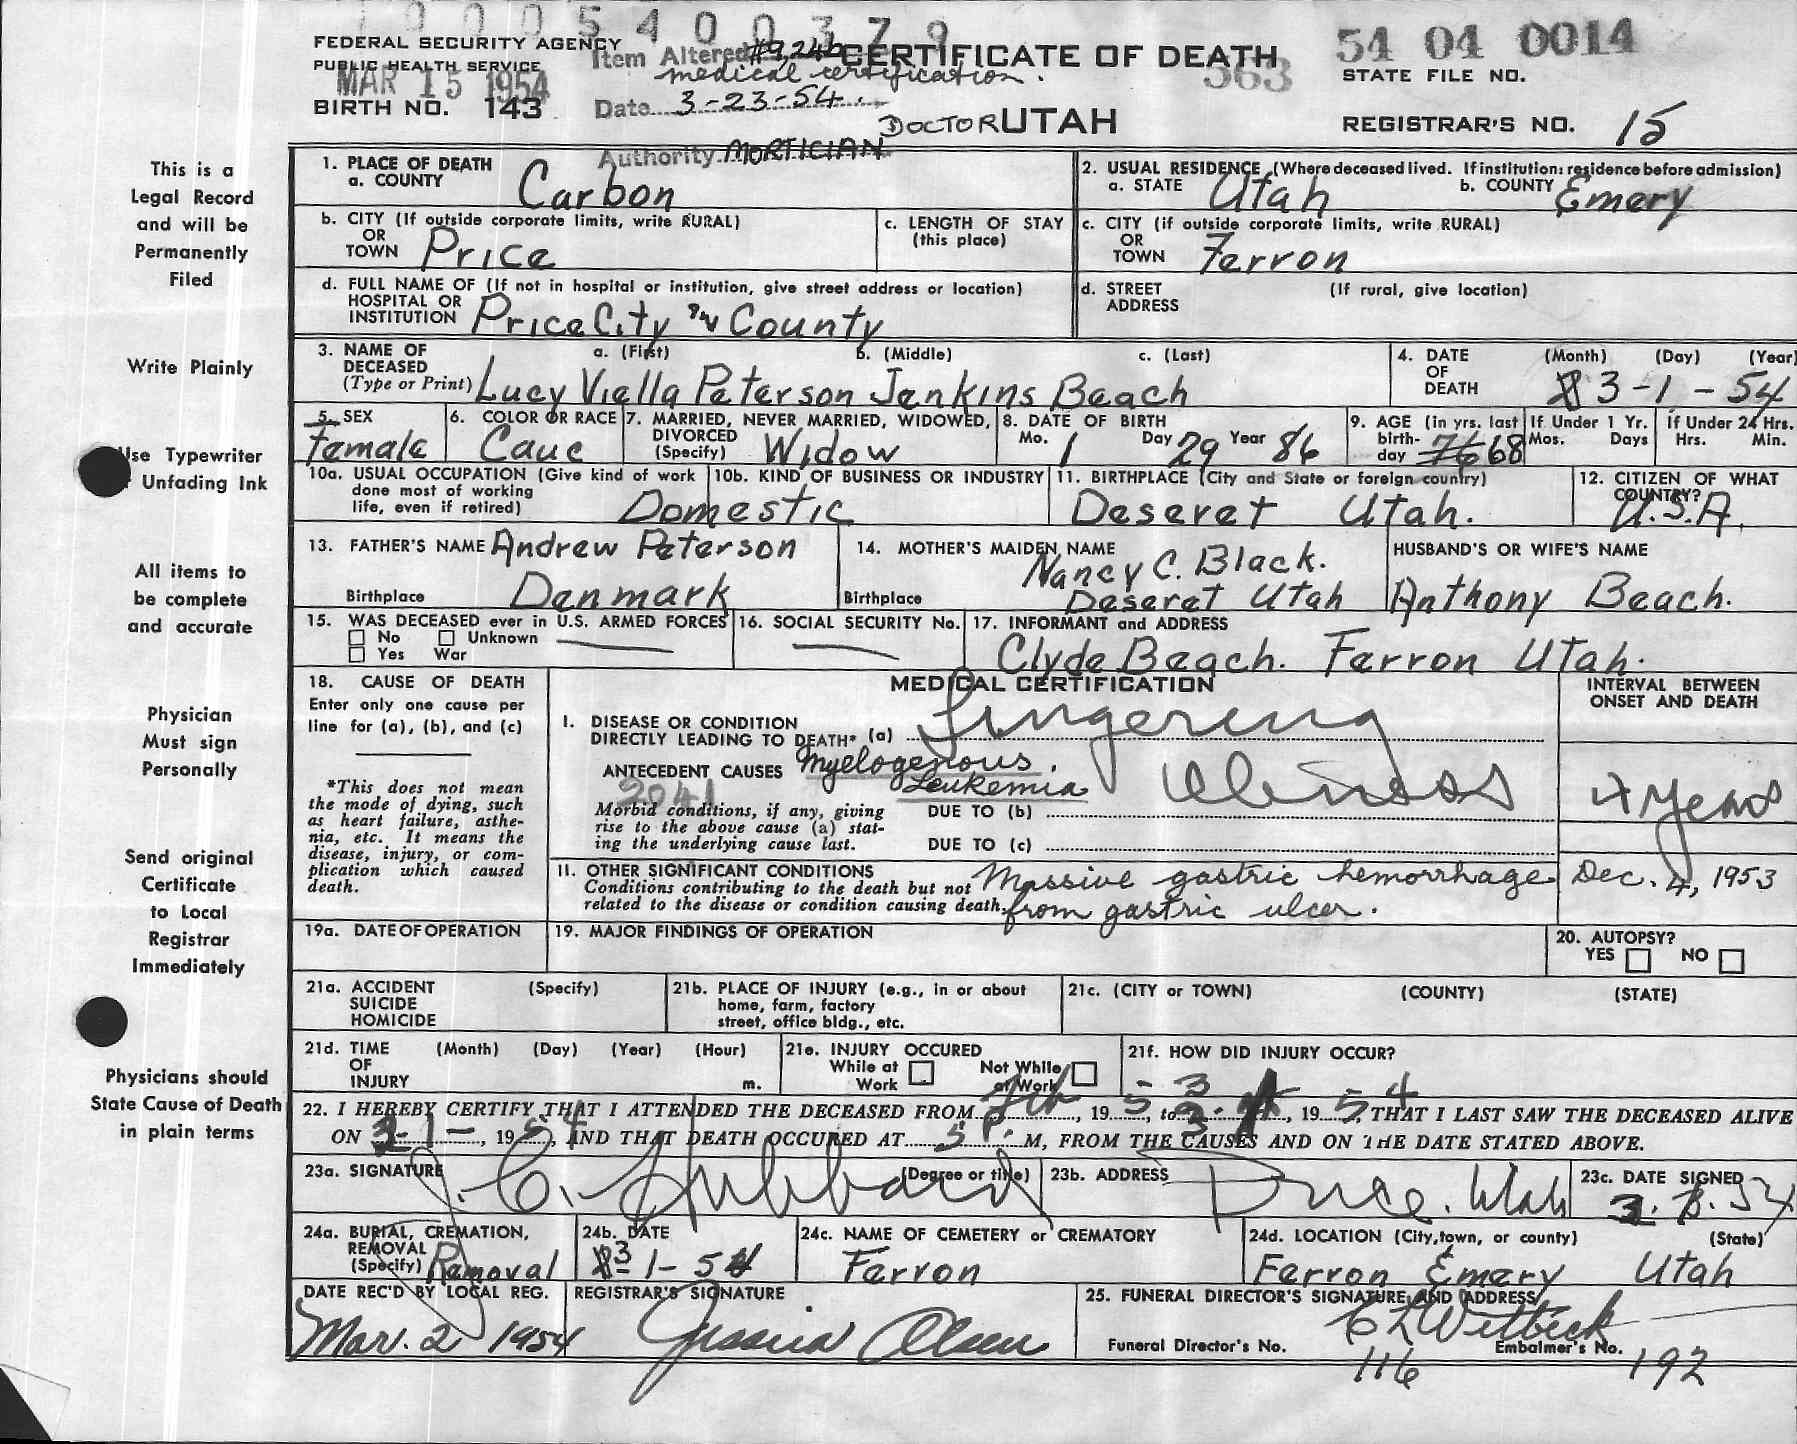 0 0 0 5 4 0 0 3 7 9
FEDERAL SECURITY AGENCY
PUBLIC HEALTH SERVICE
MAR 15 1954
BIRTH NO. 143
Item Altered #9,24b
medical certification.
Date 3-23-54.
Authority MORTICIAN
DOCTOR
CERTIFICATE OF DEATH
563
UTAH
54 04 0014
STATE FILE NO.
REGISTRAR'S NO. 15
This is a
Legal Record
and will be
Permanently
Filed
Write Plainly
Use Typewriter
Unfading Ink
All items to
be complete
and accurate
Physician
Must sign
Personally
Send original
Certificate
to Local
Registrar
Immediately
Physicians should
State Cause of Death
in plain terms
1. PLACE OF DEATH
a. COUNTY Carbon
2. USUAL RESIDENCE (Where deceased lived. If institution: residence before admission)
a. STATE Utah b. COUNTY Emery
b. CITY (If outside corporate limits, write RURAL)
OR
TOWN Price
c. LENGTH OF STAY
(this place)
c. CITY (if outside corporate limits, write RURAL)
OR
TOWN Ferron
d. FULL NAME OF (If not in hospital or institution, give street address or location)
HOSPITAL OR
INSTITUTION Price City County
d. STREET (If rural, give location)
ADDRESS
3. NAME OF a. (First) b. (Middle) c. (Last)
DECEASED
(Type or Print) Lucy Viella Peterson Jenkins Beach
4. DATE (Month) (Day) (Year)
OF
DEATH 3-1-54
5. SEX
Female
6. COLOR OR RACE
Cauc
7. MARRIED, NEVER MARRIED, WIDOWED,
DIVORCED
(Specify) Widow
8. DATE OF BIRTH
Mo. 1 Day 29 Year 86
9. AGE (in yrs. last
birth-
day 76 68
If Under 1 Yr.
Mos. Days
If Under 24 Hrs.
Hrs. Min.
10a. USUAL OCCUPATION (Give kind of work
done most of working
life, even if retired)
Domestic
10b. KIND OF BUSINESS OR INDUSTRY
11. BIRTHPLACE (City and State or foreign country)
Deseret Utah.
12. CITIZEN OF WHAT
COUNTRY?
U.S.A.
13. FATHER'S NAME Andrew Peterson
Birthplace Denmark
14. MOTHER'S MAIDEN NAME
Nancy C. Black.
Birthplace Deseret Utah
HUSBAND'S OR WIFE'S NAME
Anthony Beach.
15. WAS DECEASED ever in U.S. ARMED FORCES
No Unknown
Yes War
16. SOCIAL SECURITY No.
17. INFORMANT and ADDRESS
Clyde Beach. Ferron Utah.
18. CAUSE OF DEATH
Enter only one cause per
line for (a), (b), and (c)
*This does not mean
the mode of dying, such
as heart failure, asthe-
nia, etc. It means the
disease, injury, or com-
plication which caused
death.
MEDICAL CERTIFICATION
I. DISEASE OR CONDITION
DIRECTLY LEADING TO DEATH* (a) Lingering
Illness
ANTECEDENT CAUSES Myelogenous.
Leukemia
2041
Morbid conditions, if any, giving
rise to the above cause (a) stat-
ing the underlying cause last.
DUE TO (b)
DUE TO (c)
INTERVAL BETWEEN
ONSET AND DEATH
4 years
11. OTHER SIGNIFICANT CONDITIONS
Conditions contributing to the death but not
related to the disease or condition causing death.
Massive gastric hemorrhage
from gastric ulcer.
Dec. 4, 1953
19a. DATE OF OPERATION
19. MAJOR FINDINGS OF OPERATION
20. AUTOPSY?
YES NO
21a. ACCIDENT (Specify)
SUICIDE
HOMICIDE
21b. PLACE OF INJURY (e.g., in or about
home, farm, factory
street, office bldg., etc.
21c. (CITY or TOWN) (COUNTY) (STATE)
21d. TIME (Month) (Day) (Year) (Hour)
OF
INJURY m.
21e. INJURY OCCURED
While at Work
Not While at Work
21f. HOW DID INJURY OCCUR?
22. I HEREBY CERTIFY THAT I ATTENDED THE DECEASED FROM Feb, 1953, to 3-1, 1954, THAT I LAST SAW THE DECEASED ALIVE
ON 3-1-, 1954, AND THAT DEATH OCCURED AT 5 P. M, FROM THE CAUSES AND ON THE DATE STATED ABOVE.
23a. SIGNATURE (Degree or title)
J. C. Hubbard
23b. ADDRESS
Price. Utah
23c. DATE SIGNED
24a. BURIAL, CREMATION,
REMOVAL
(Specify) Removal
24b. DATE
3 1-54
24c. NAME OF CEMETERY or CREMATORY
Ferron
24d. LOCATION (City, town, or county) (State)
Ferron Emery Utah
DATE REC'D BY LOCAL REG.
Mar. 2 1954
REGISTRAR'S SIGNATURE
Olsen
25. FUNERAL DIRECTOR'S SIGNATURE AND ADDRESS
Funeral Director's No. 116
Embalmer's No. 192